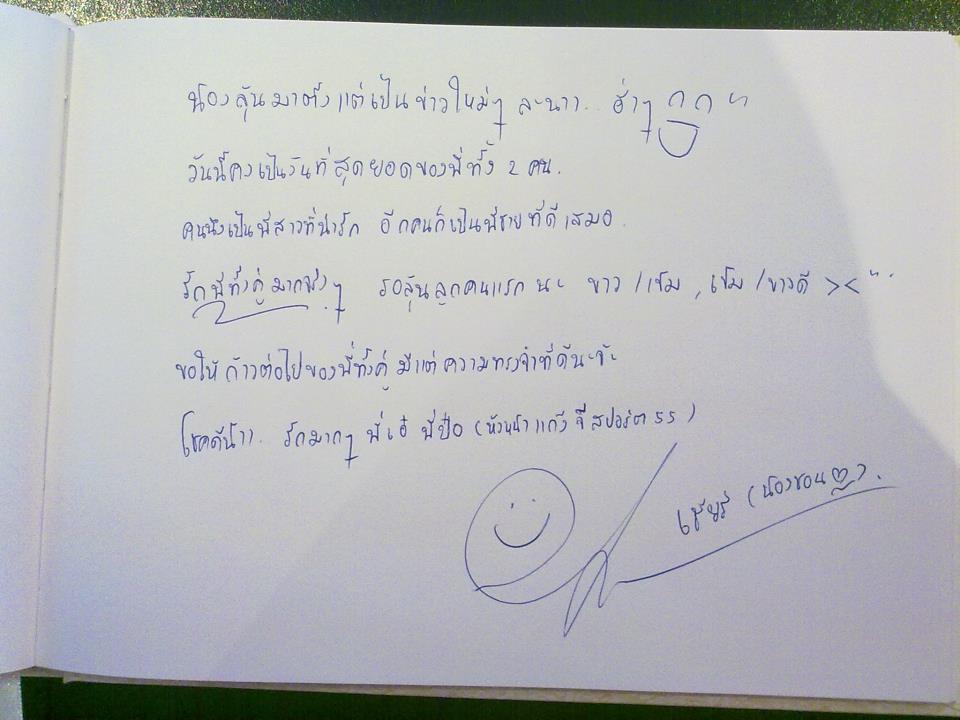 น้องลุ้นมาตั้งแต่เป็นข่าวใหม่ๆ ละนาา.. ฮ่าๆ
วันนี้คงเป็นวันที่สุดยอดของพี่ทั้ง 2 คน.
คนนึงเป็นพี่สาวที่น่ารัก อีกคนก็เป็นพี่ชายที่ดีเสมอ.
รักพี่ทั้งคู่มากจริงๆ รอลุ้นลูกคนแรก นะ ขาว/เข้ม, เข้ม/ขาวดี ><
ขอให้ก้าวต่อไปของพี่ทั้งคู่ มีแต่ความทรงจำที่ดีนะจ๊ะ
โชคดีน้าา.. รักมากๆ พี่เอ๋ พี่ป้อ (หัวหน้าแก๊งจี๊สปอร์ต 55)
(น้องชอน).